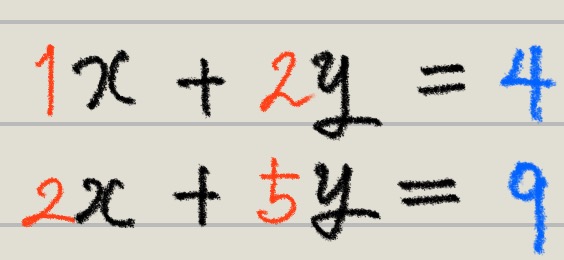 1x + 2y = 4
2x + 5y = 9